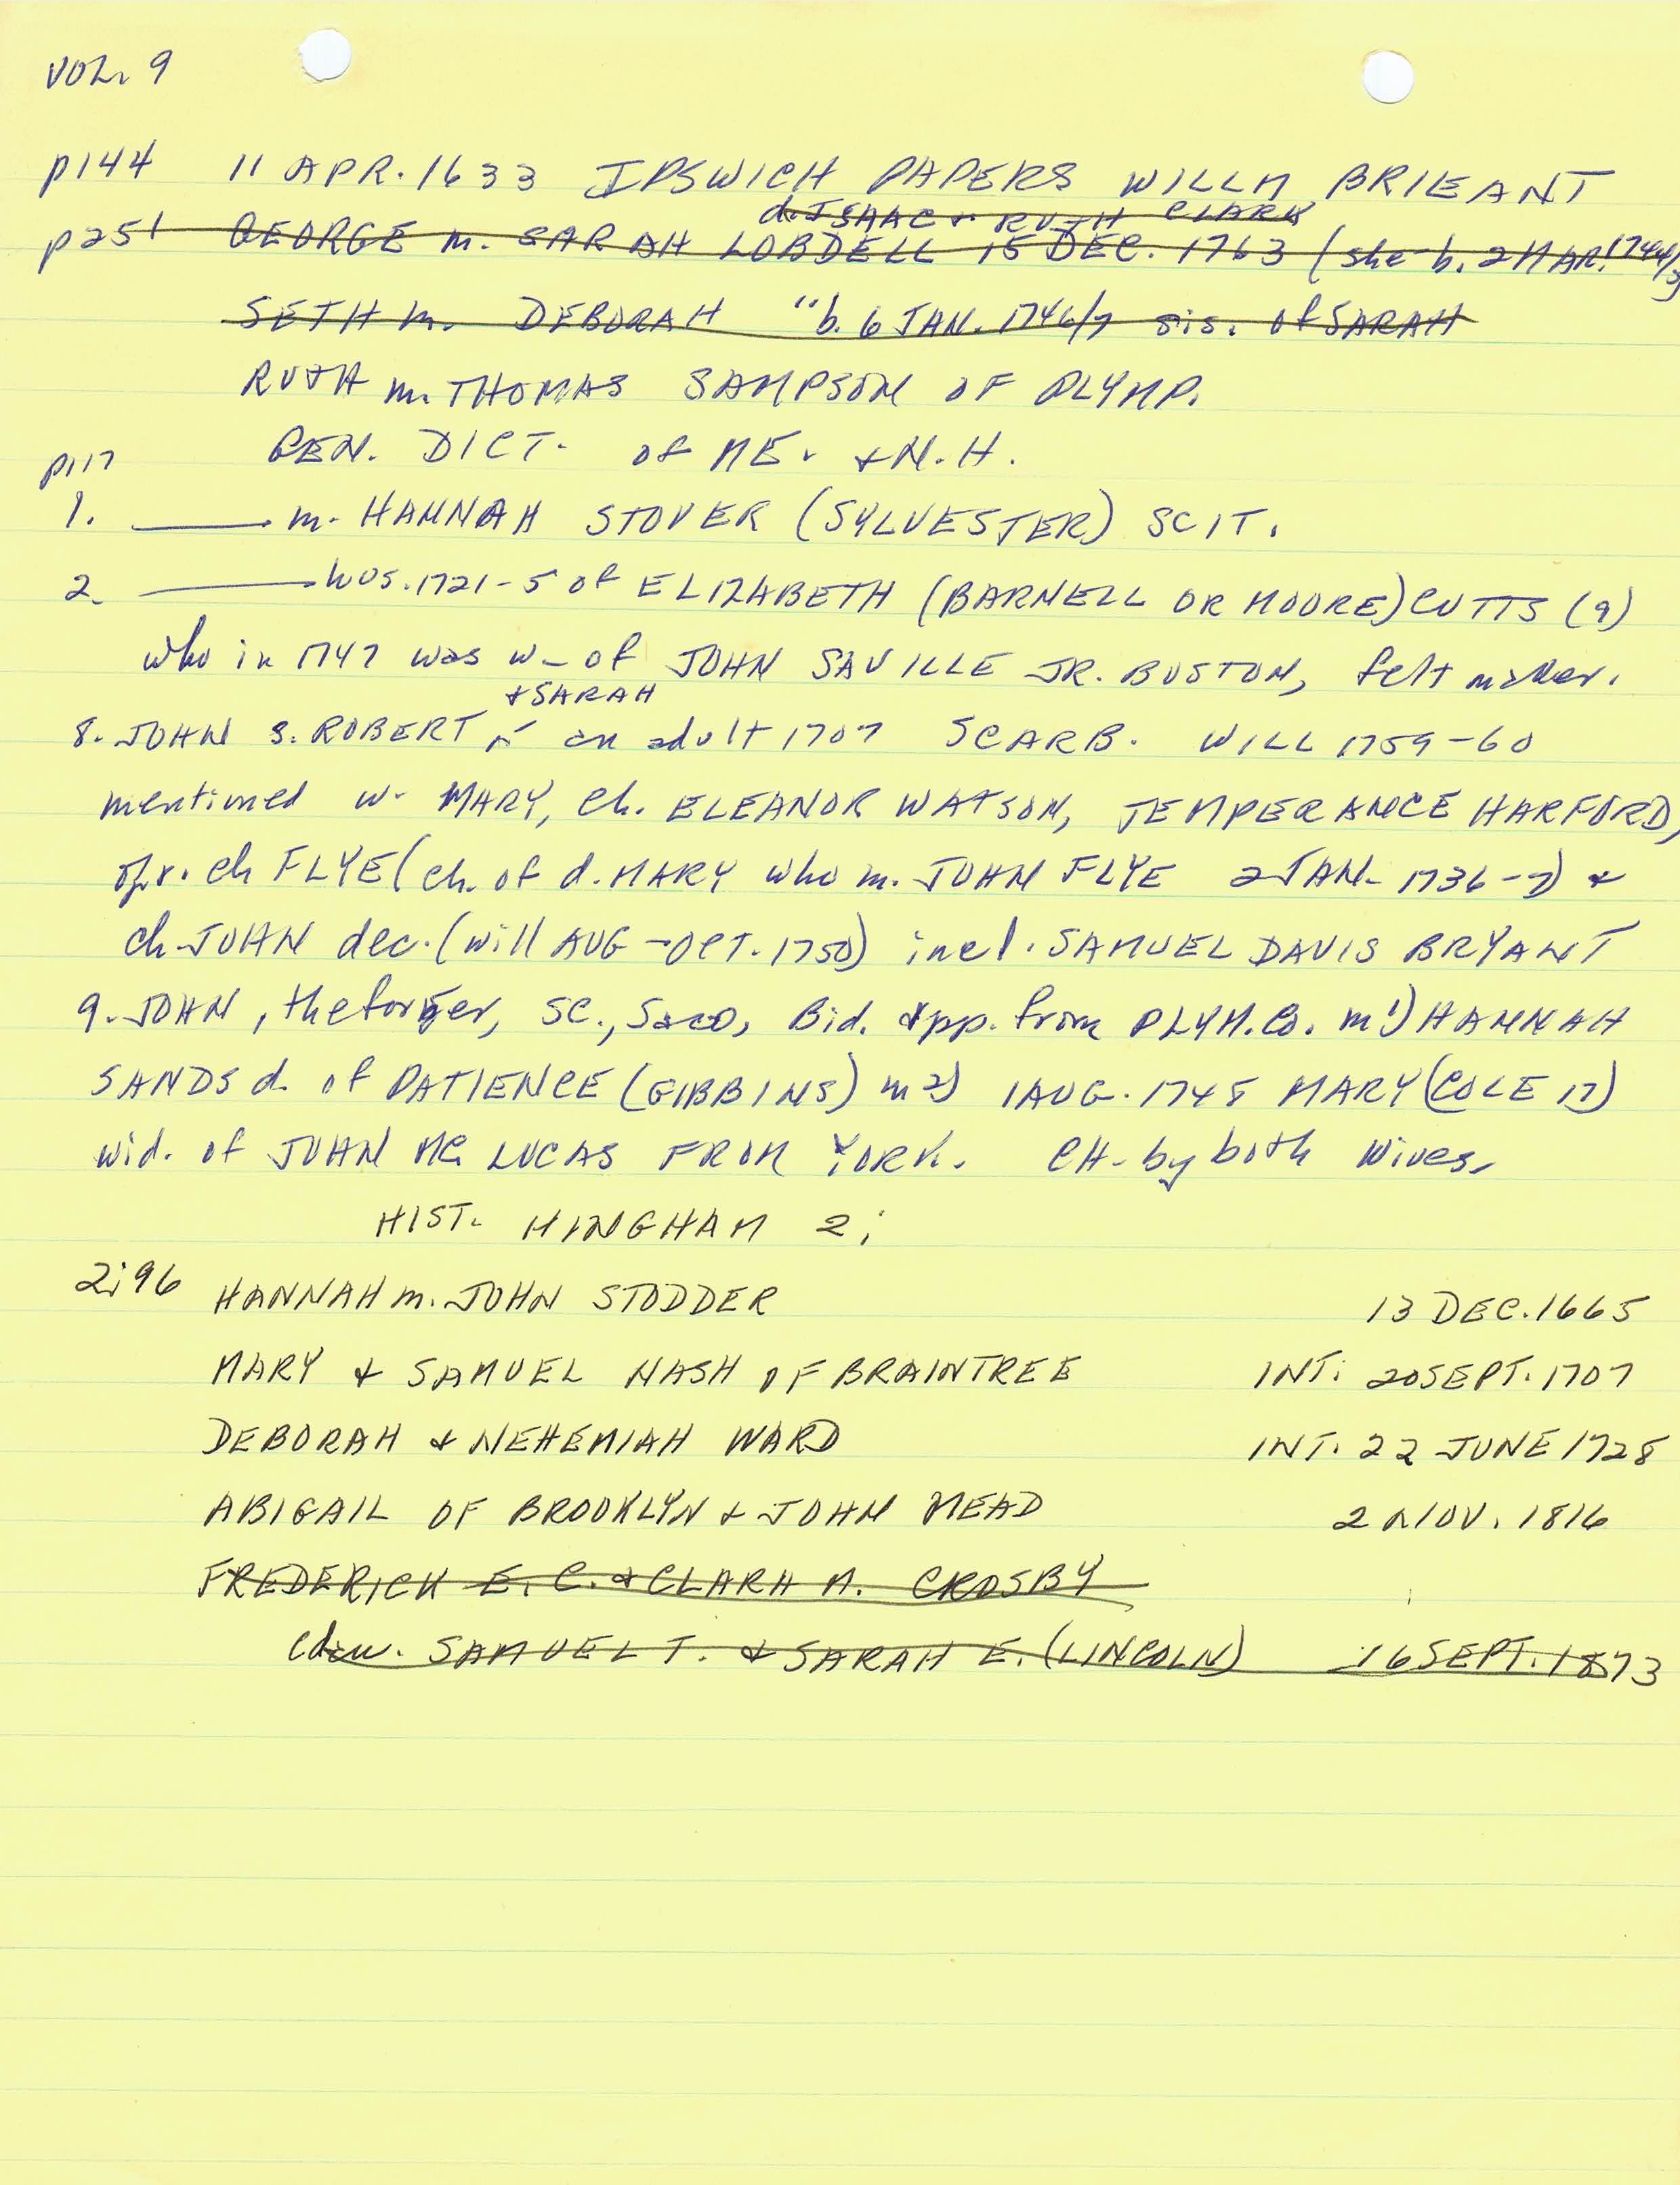 VOL. 9
p144 11 APR. 1633 IPSWICH PAPERS WILLM BRIEANT
d. ISAAC + RUTH CLARK
p251 GEORGE m. SARAH LOBDELL 15 DEC. 1763 (she b. 2 MAR. 1744/5
SETH m. DEBORAH " b. 6 JAN. 1746/7 sis. of SARAH
RUTH m. THOMAS SAMPSON OF PLYMP.
GEN. DICT. of ME. + N.H.
p117
1. ——— m. HANNAH STOVER (SYLVESTER) SCIT.
2. ——— hus. 1721-5 of ELIZABETH (BARNELL OR MOORE) CUTTS (9)
who in 1747 was w- of JOHN SAVILLE JR. BOSTON, felt maker.
+ SARAH
8. JOHN s. ROBERT ^ an adult 1707 SCARB. WILL 1759-60
mentioned w. MARY, ch. ELEANOR WATSON, TEMPERANCE HARFORD,
gr. ch FLYE (ch. of d. MARY who m. JOHN FLYE 2 JAN. 1736-7) +
ch. JOHN dec. (will AUG - OCT. 1750) incl. SAMUEL DAVIS BRYANT
9. JOHN, the forger, SC., Saco, Bid. app. from PLYM. Co. m 1) HANNAH
SANDS d. of PATIENCE (GIBBINS) m 2) 1 AUG. 1748 MARY (COLE 17)
wid. of JOHN MC LUCAS FROM YORK. CH. by both wives.
HIST. HINGHAM 2;
2;96 HANNAH m. JOHN STODDER 13 DEC. 1665
MARY + SAMUEL NASH OF BRAINTREE INT: 20 SEPT. 1707
DEBORAH + NEHEMIAH WARD INT. 22 JUNE 1728
ABIGAIL OF BROOKLYN + JOHN MEAD 2 NOV. 1816
FREDERICK E. C. + CLARA M. CROSBY
SAMUEL T. + SARAH E. (LINCOLN) 16 SEPT. 1873